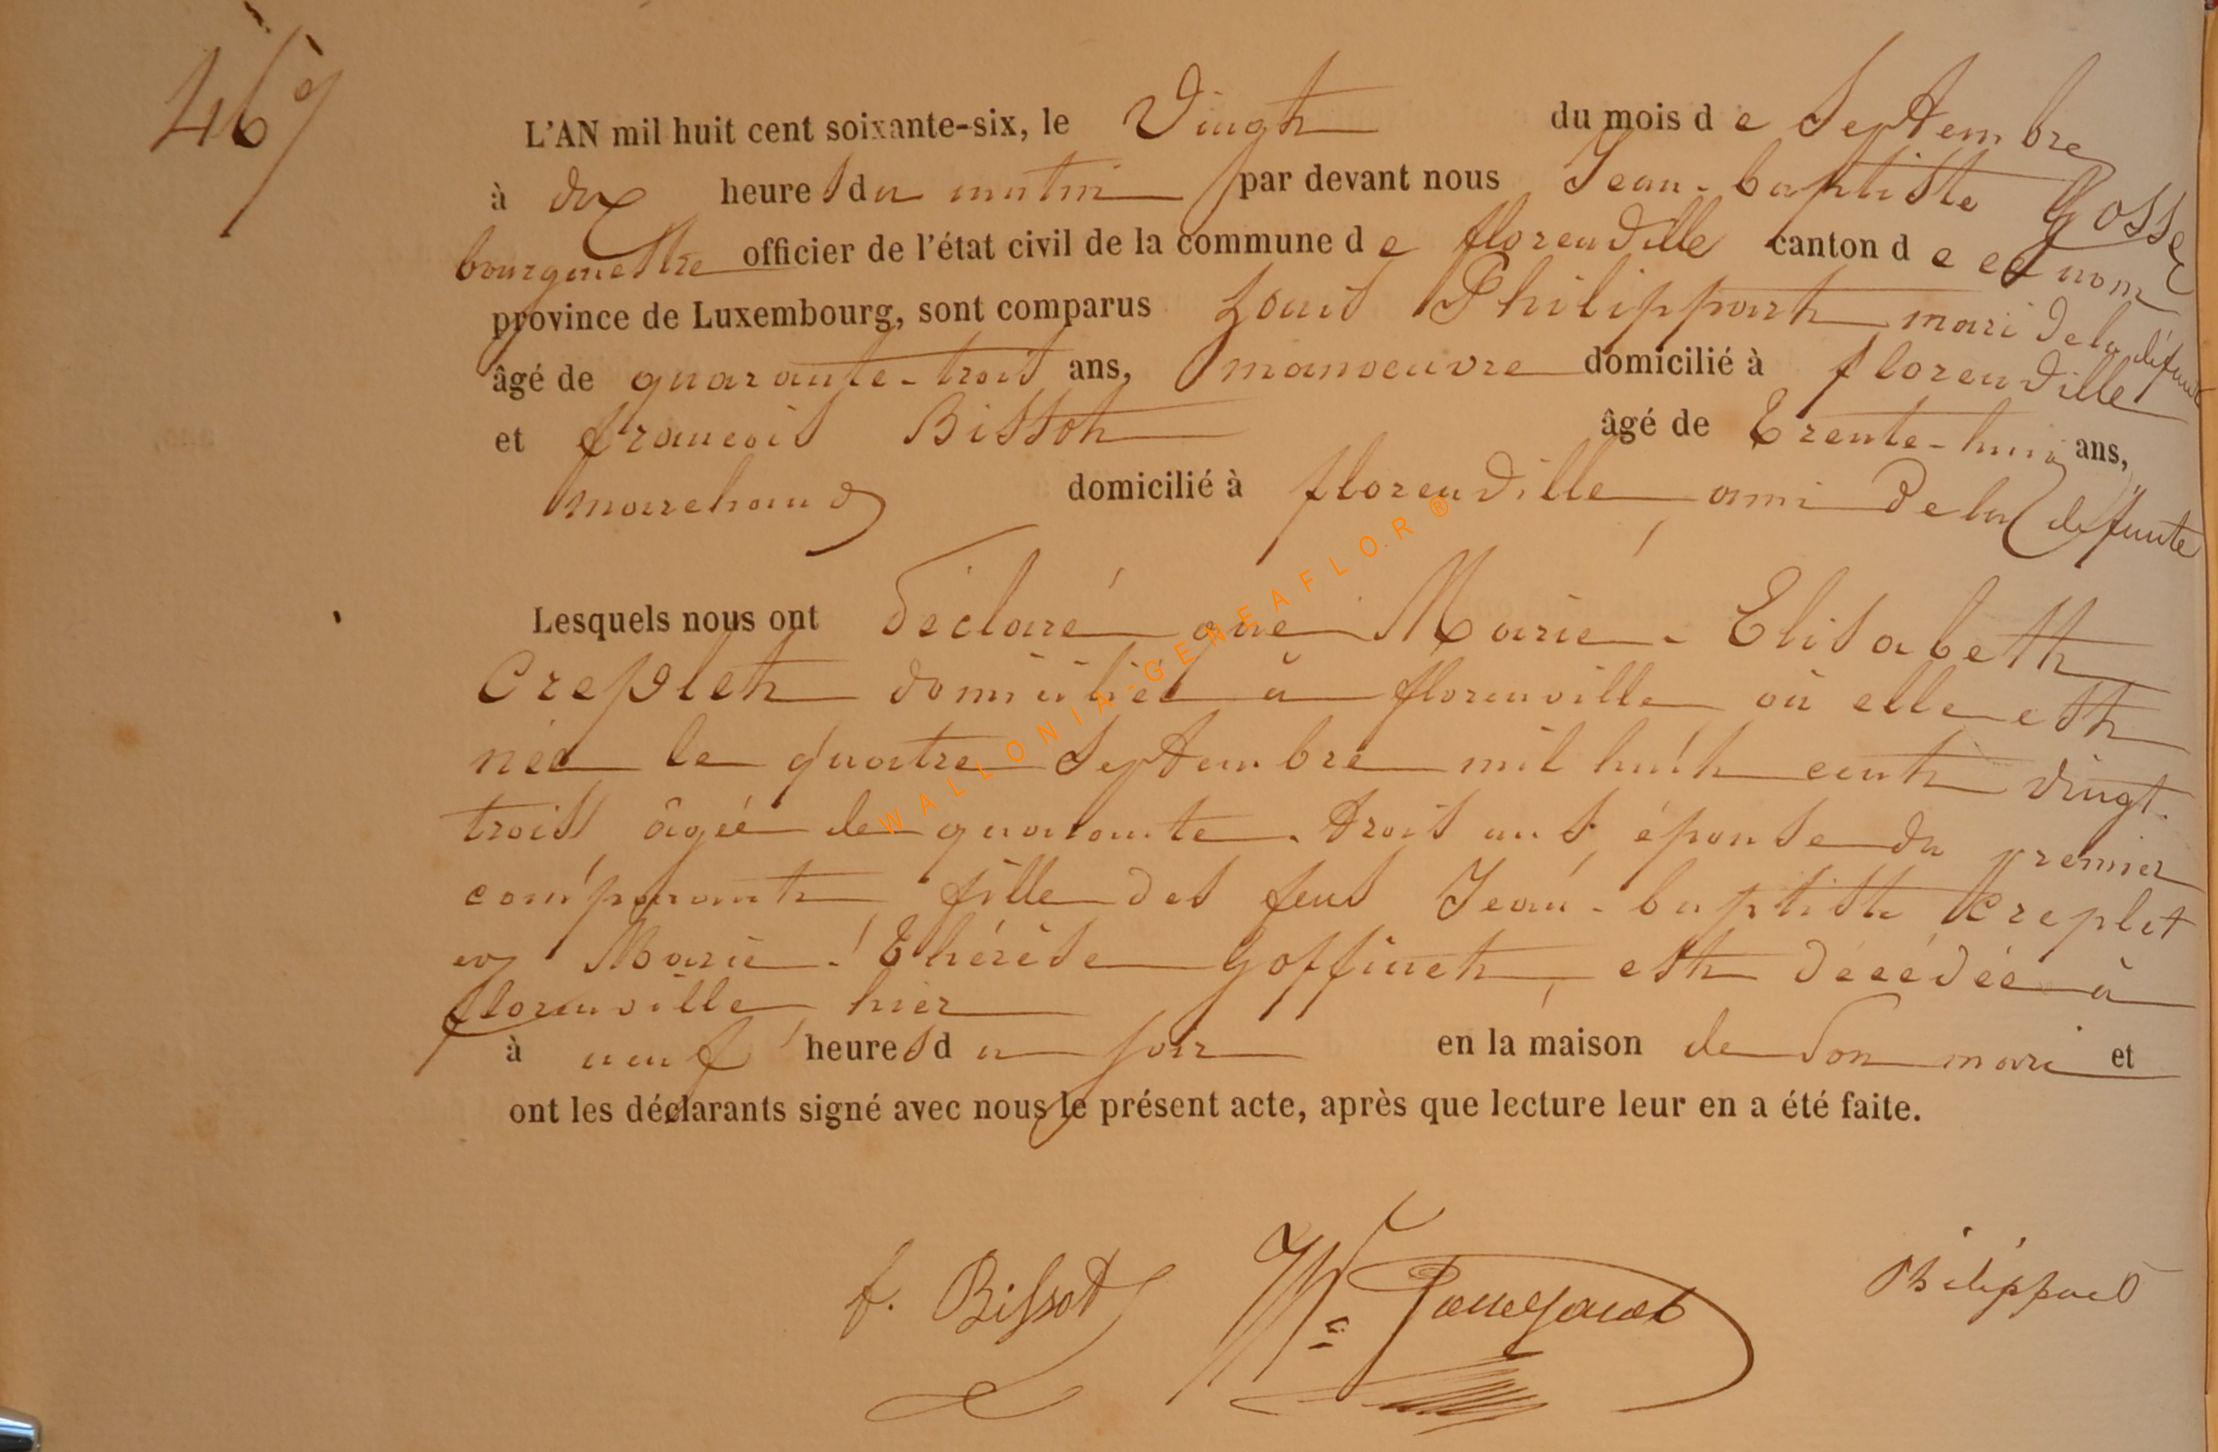 46e
L'AN mil huit cent soixante-six, le Vingt du mois d e Septembre
à dix heure s du matin par devant nous Jean-baptiste Gosse
bourgmestre officier de l'état civil de la commune d e florenville canton d e ce nom
province de Luxembourg, sont comparus Louis Philippart mari de la défunte
âgé de quarante-trois ans, manoeuvre domicilié à florenville
et francois Bissot âgé de Trente-huit ans,
marchand domicilié à florenville ami de la défunte
Lesquels nous ont déclaré que Marie-Elisabeth
Creplet domiciliée à florenville où elle est
née le quatre Septembre mil huit cent vingt-
trois âgée de quarante-trois ans, épouse du premier
comparant fille des feus Jean-baptiste Creplet
et Marie-Thérèse Goffinet, est décédée à
florenville hier
à neuf heure s d u soir en la maison de son mari et
ont les déclarants signé avec nous le présent acte, après que lecture leur en a été faite.
f. Bissot Philippart
WALLONIA-GENEAFLO.R ®